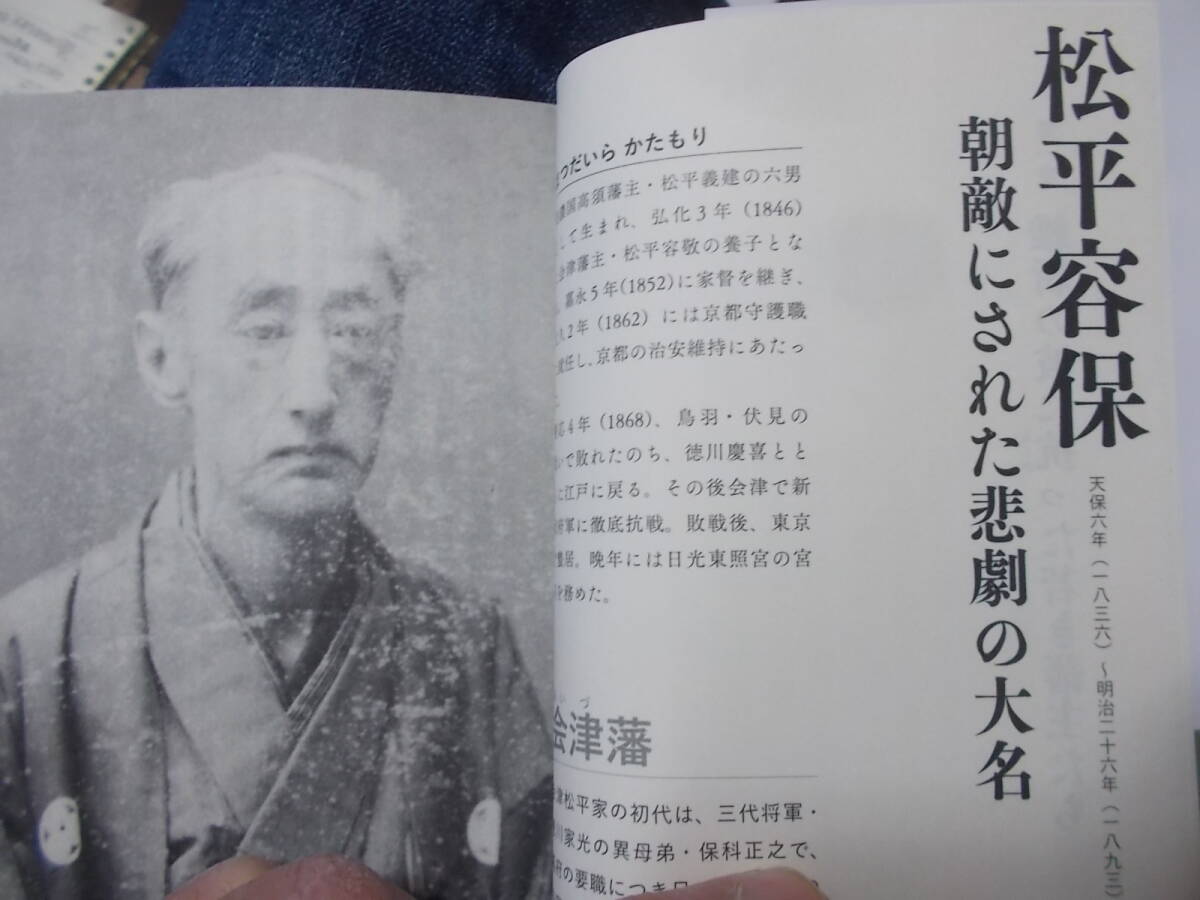 松平容保
天保六年（一八三六）～明治二十六年（一八九三）
朝敵にされた悲劇の大名
つだいら かたもり
国高須藩主・松平義建の六男
して生まれ、弘化3年（1846）
会津藩主・松平容敬の養子とな
嘉永5年（1852）に家督を継ぎ、
2年（1862）には京都守護職
任し、京都の治安維持にあたっ
4年（1868）、鳥羽・伏見の
いで敗れたのち、徳川慶喜とと
に江戸に戻る。その後会津で新
軍に徹底抗戦。敗戦後、東京
居。晩年には日光東照宮の宮
を務めた。
づ
会津藩
津松平家の初代は、三代将軍・
川家光の異母弟・保科正之で、
府の要職につき